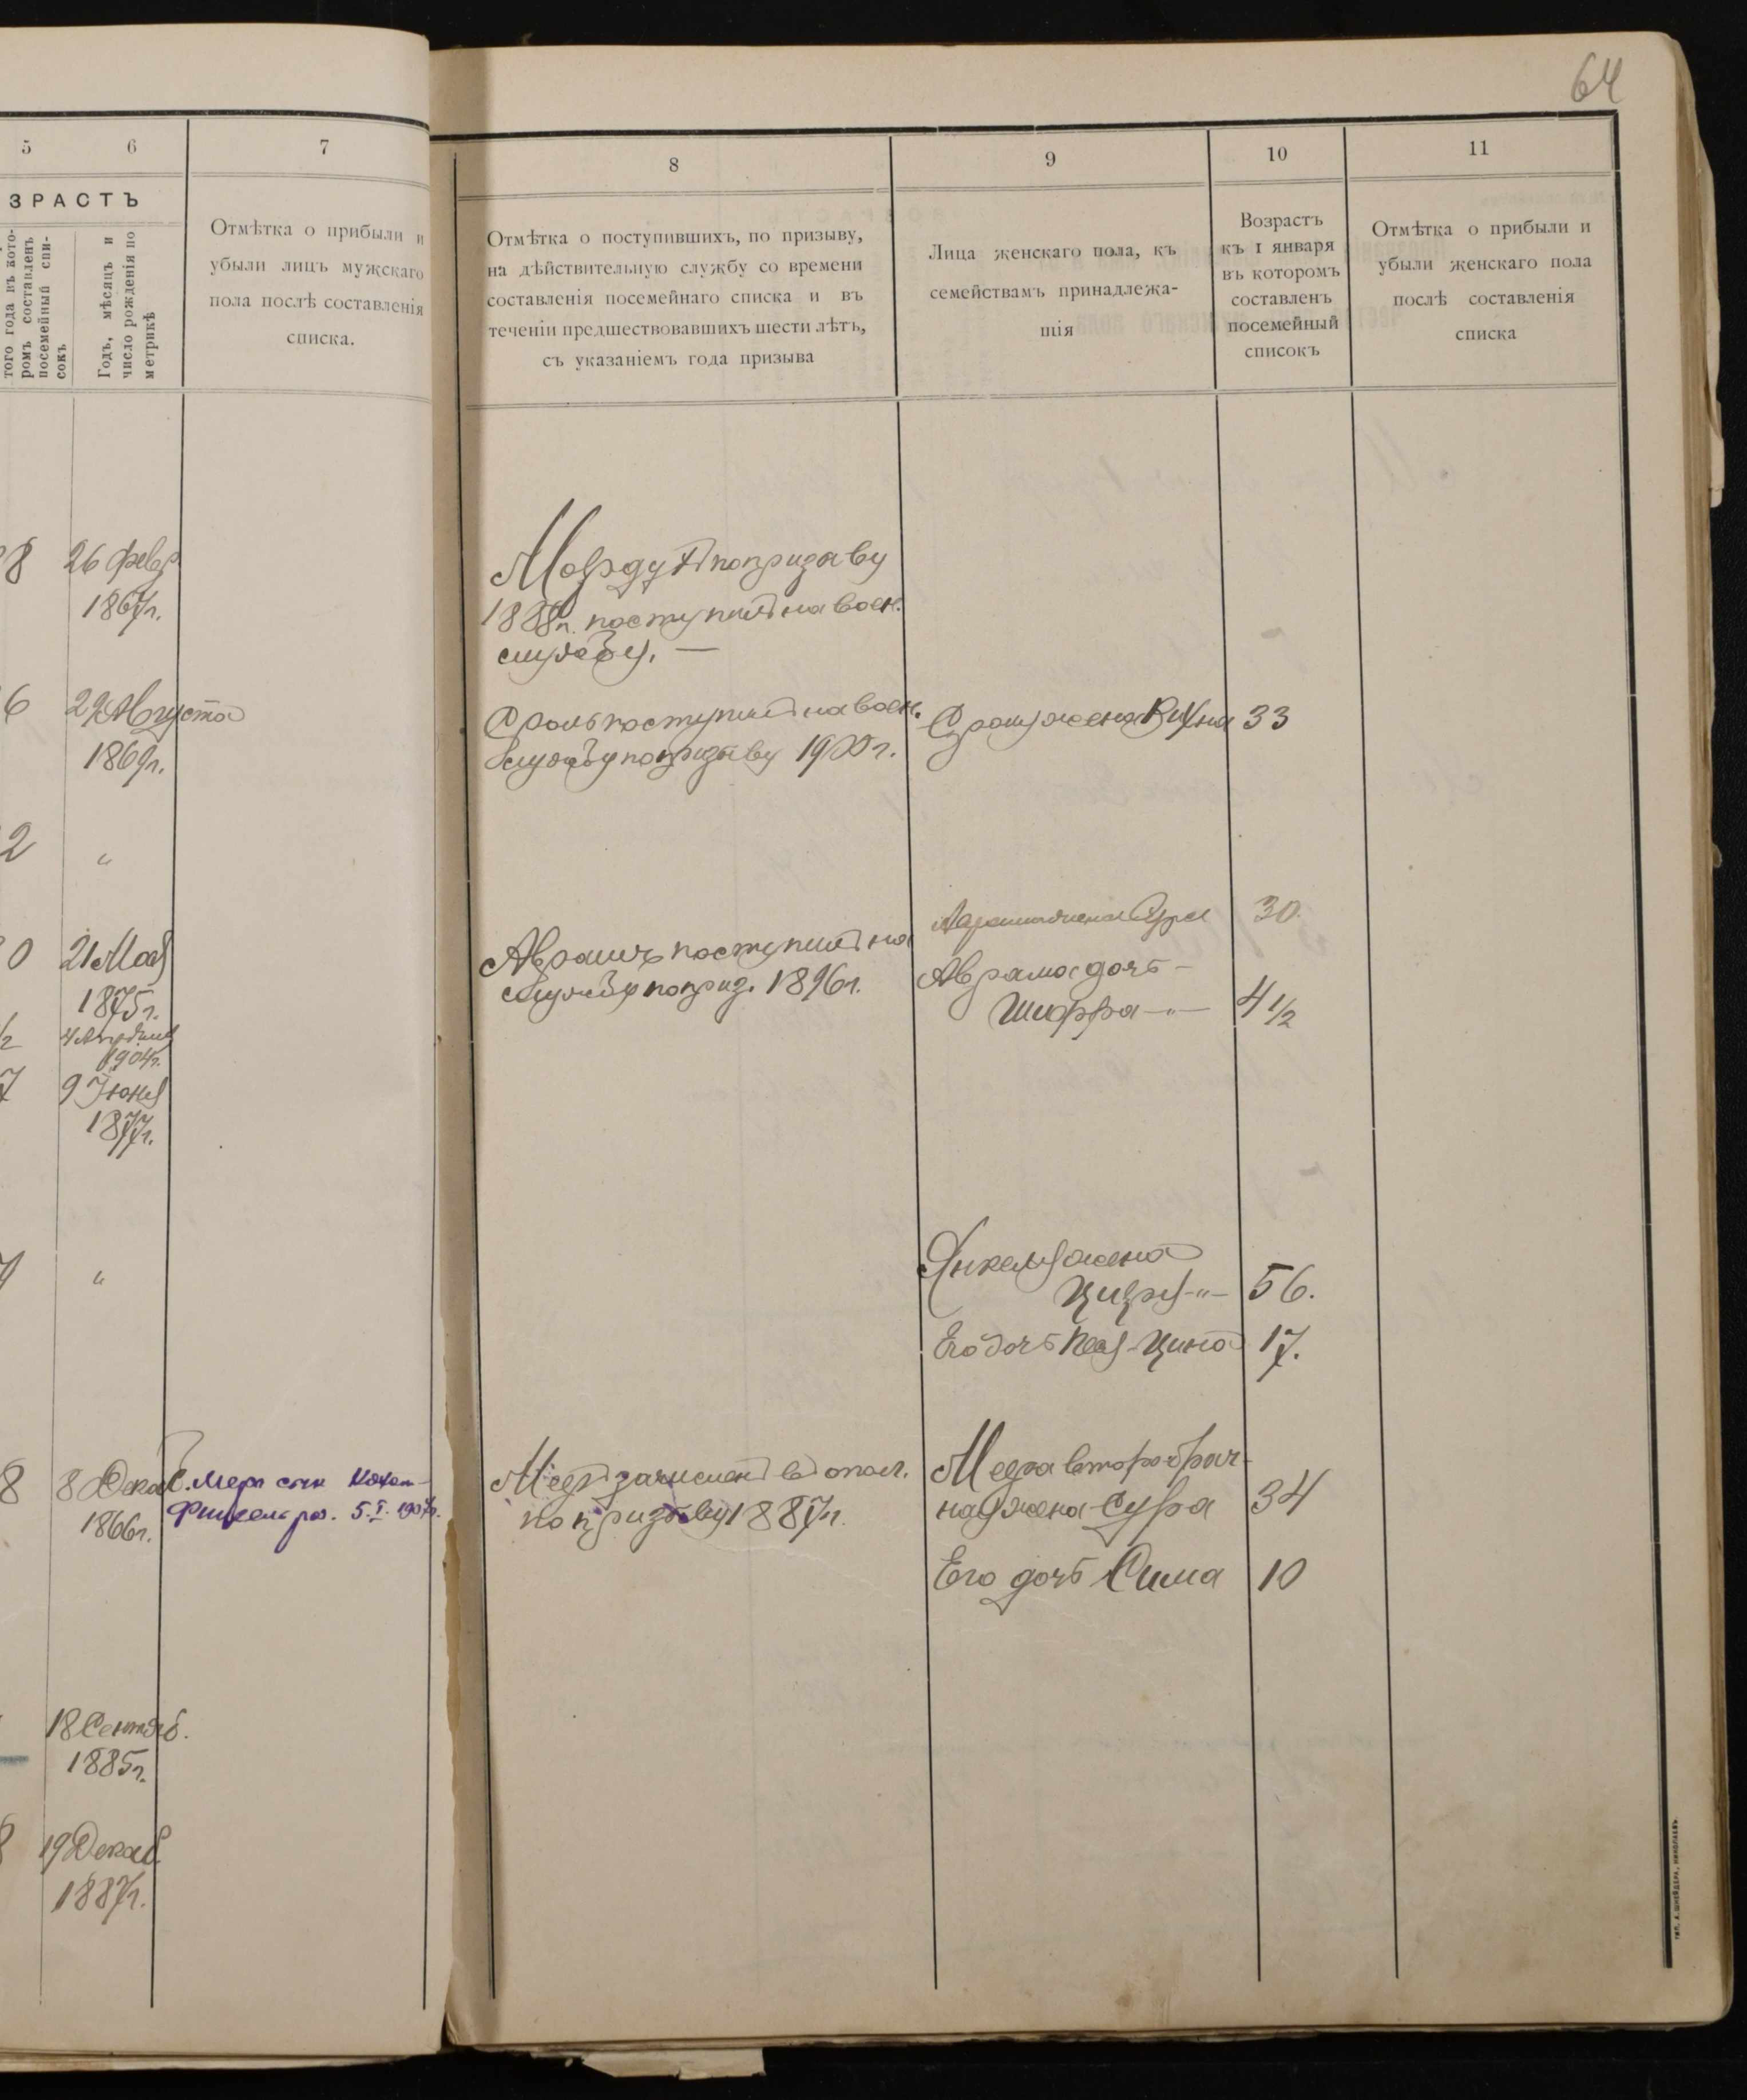 64
5
6
7
ЗРАСТЪ
того года въ кото-
ромъ составленъ
посемейный спи-
сокъ
Годъ, мѣсяцъ и
число рожденія по
метрикѣ
Отмѣтка о прибыли и
убыли лицъ мужскаго
пола послѣ составленія
списка.
8
9
10
11
Отмѣтка о поступившихъ, по призыву,
на дѣйствительную службу со времени
составленія посемейнаго списка и въ
теченіи предшествовавшихъ шести лѣтъ,
съ указаніемъ года призыва
Лица женскаго пола, къ
семействамъ принадлежа-
щія
Возрастъ
къ 1 января
въ которомъ
составленъ
посемейный
списокъ
Отмѣтка о прибыли и
убыли женскаго пола
послѣ составленія
списка
8
26 Февр.
1867г.
по призыву
1888г. поступилъ на воен.
службу. —
6
29 Августа
1869г.
Сроль поступилъ на воен.
службу по призыву 1900г.
Сроля жена 33
2
"
0
21 Мая
1875г.
Аврамъ поступилъ на
службу по приз. 1896г.
жена Сура 30.
Аврама дочь -
Шифра -"- 4 1/2
1904г.
7
9 Іюня
1877г.
"
Янкеля жена
-"- 56.
Его дочь Цина 17.
8
8 Декаб.
1866г.
сын
5.I.1907г.
зачисленъ в опол.
по призыву 1887г.
второбрач-
ная жена Сура 34
Его дочь Сима 10
18 Сентяб.
1885г.
19 Декаб.
1887г.